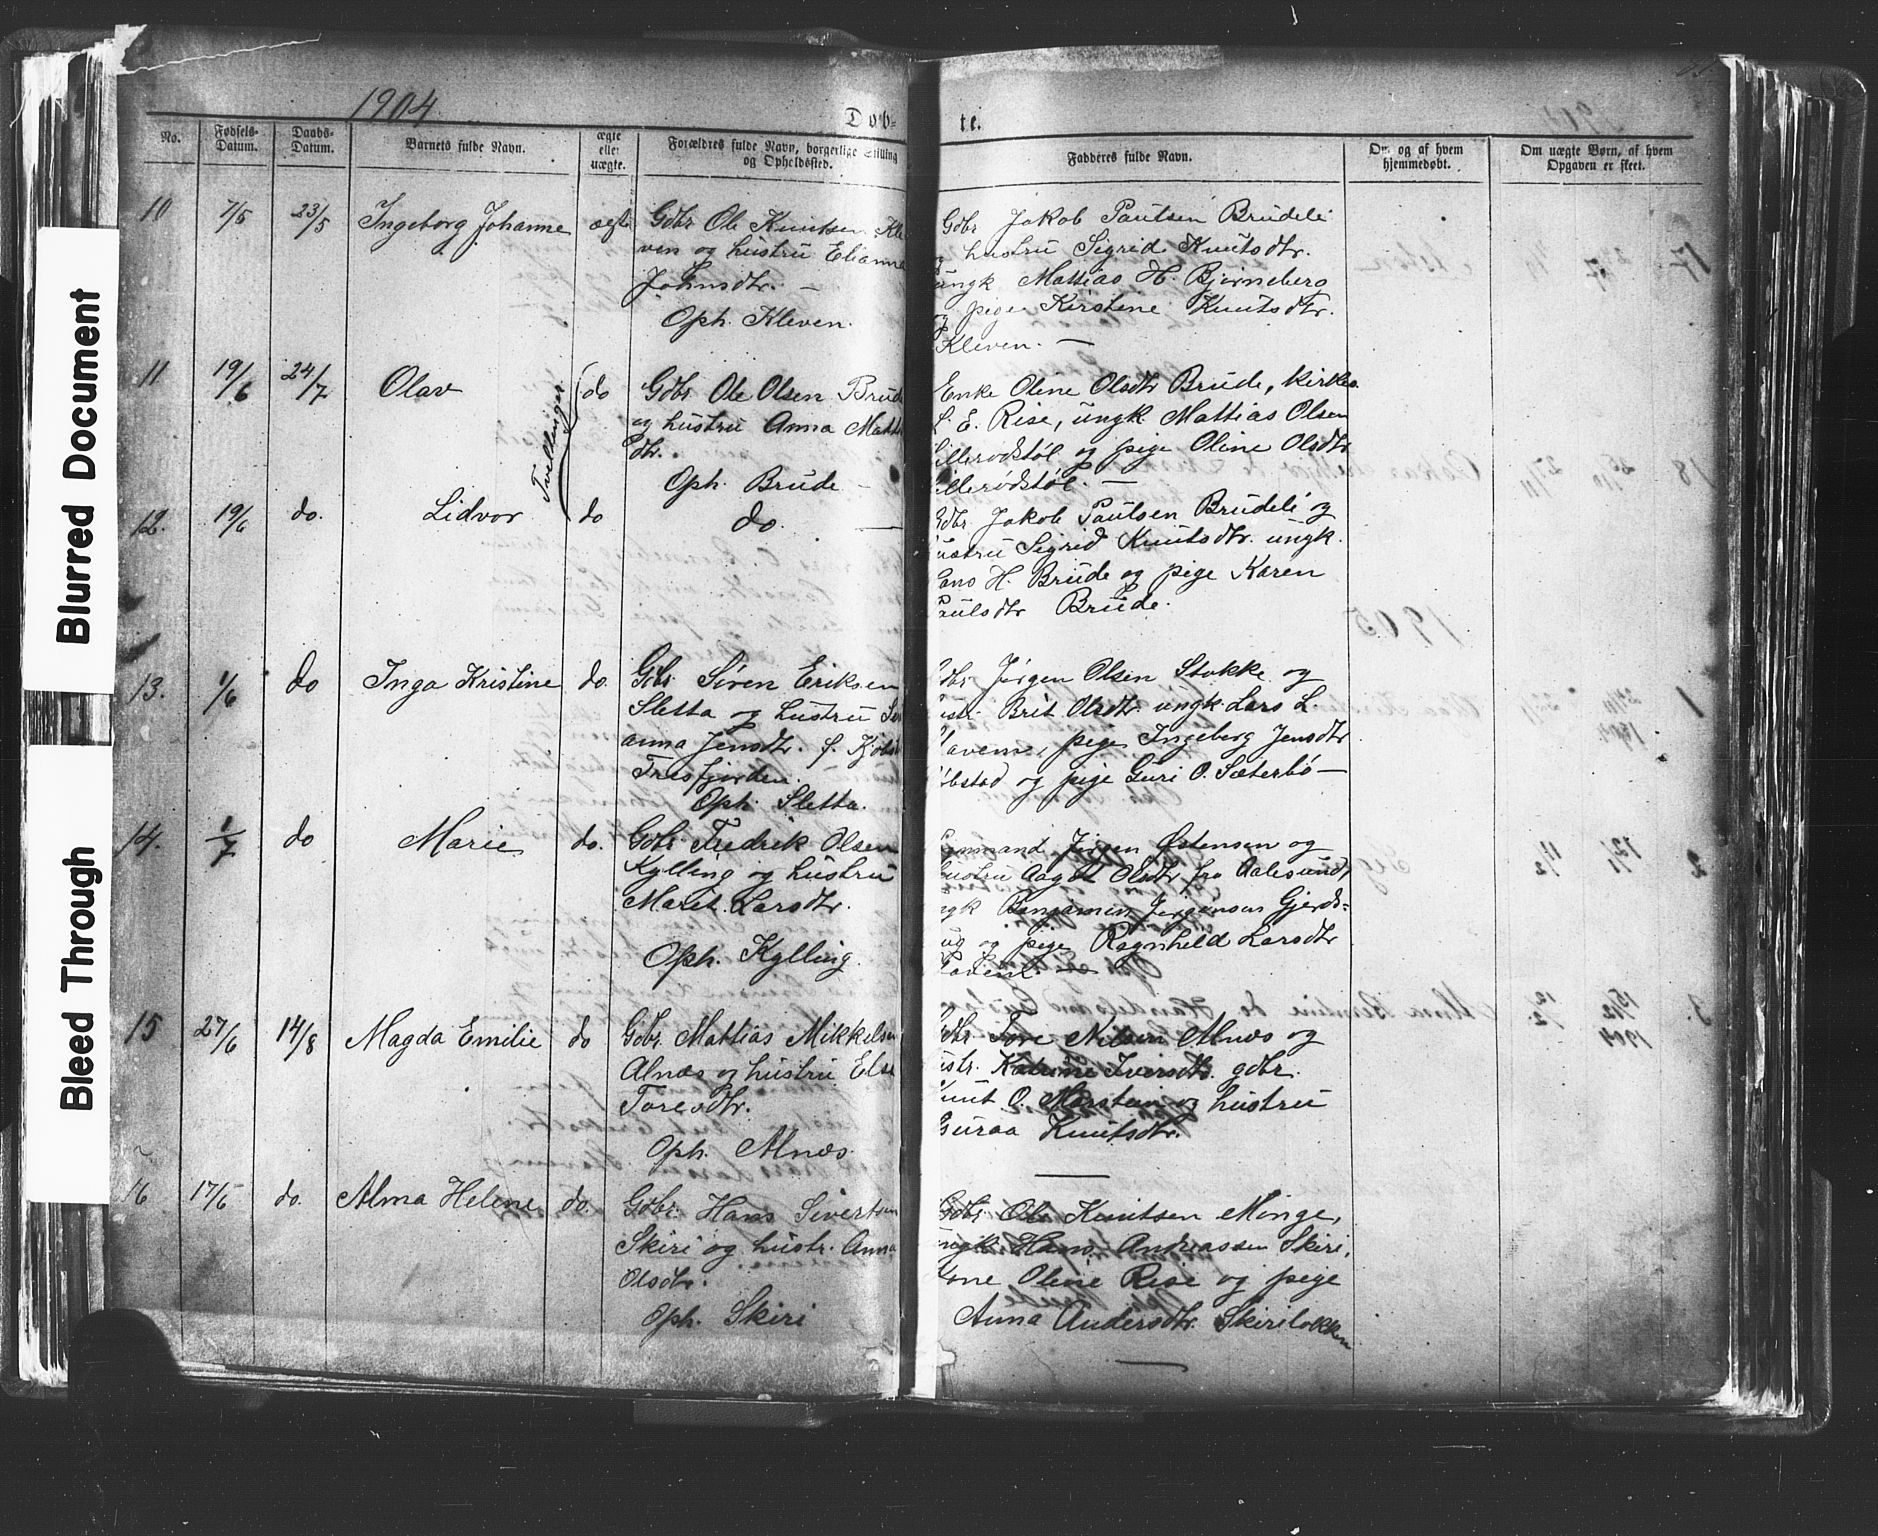 1904
Døb-
te.
No.
Fødsels-Datum.
Daabs-Datum.
Barnets fulde Navn.
ægte eller uægte.
Forældres fulde Navn, borgerlige Stilling og Opholdssted.
Fadderes fulde Navn.
Om og af hvem hjemmedøbt.
Om uægte Børn, af hvem Opgaven er skeet.
10 7/5 23/5 Ingeborg Johanne ægte
Gdbr Ole Knutsen Kle
ven og hustru Elianna
Johnsdtr. —
Oph. Kleven.
Gdbr Jakob Paulsen Brudeli
og hustru Sigrid Knutsdtr.
ungk Mattias H. Bjørneberg
og pige Kirstine Knutsdtr.
Kleven. —
11 19/6 24/7 Olav do
Tvellinger
Gdbr Ole Olsen Brude
og hustru Anna Matt
dtr.
Oph. Brude —
Enke Oline Olsdtr Brude, kirkes.
L. E. Rise, ungk Mattias Olsen
illerødstøl og pige Oline Olsdtr
illerødstøl. —
12. 19/6 do. Lidvor do do. —
Gdbr. Jakob Paulsen Brudeli og
hustru Sigrid Knutsdtr. ungk.
Hans H. Brude og pige Karen
Paulsdtr Brude.
13. 1/6 do Inga Kristine do.
Gdbr. Søren Eriksen
Sletta og hustru
anna Jensdtr. f.
Tresfjorden.
Oph. Sletta.
Gdbr. Jørgen Olsen Stokke og
hustr. Brit Olsdtr. ungk. Lars L.
pige Ingeberg Jensdtr
og pige Guri O. Sæterbø —
14. 1/7 do Marie do.
Gdbr. Fredrik Olsen
Kylling og hustru
Marit Larsdtr.
Oph. Kylling.
Jørgen Østensen og
hustru Aagot Olsdtr. fra Aalesund,
ungk Benjamin Jørgensen Gjerds-
og pige Ragnhild Larsdtr
15 27/6 14/8 Magda Emilie do
Gdbr. Mattias Mikkelsen
Alnæs og hustru Else
Toresdtr.
Oph. Alnæs.
Gdbr. Tore Nilsen Alnæs og
hustr. Katrine Iversdtr. gdbr.
Knut O. Marstein og hustru
Guraa Knutsdtr.
16 17/5 do. Alma Helene do.
Gdbr. Hans Sivertsen
Skiri og hustr. Anna
Olsdtr.
Oph. Skiri
Gdbr. Ole Knutsen Monge,
ungk. Hans Andreassen Skiri,
kone Oline Rise og pige
Anna Andersdtr. Skiriløkken
—
Blurred Document
Bleed Through